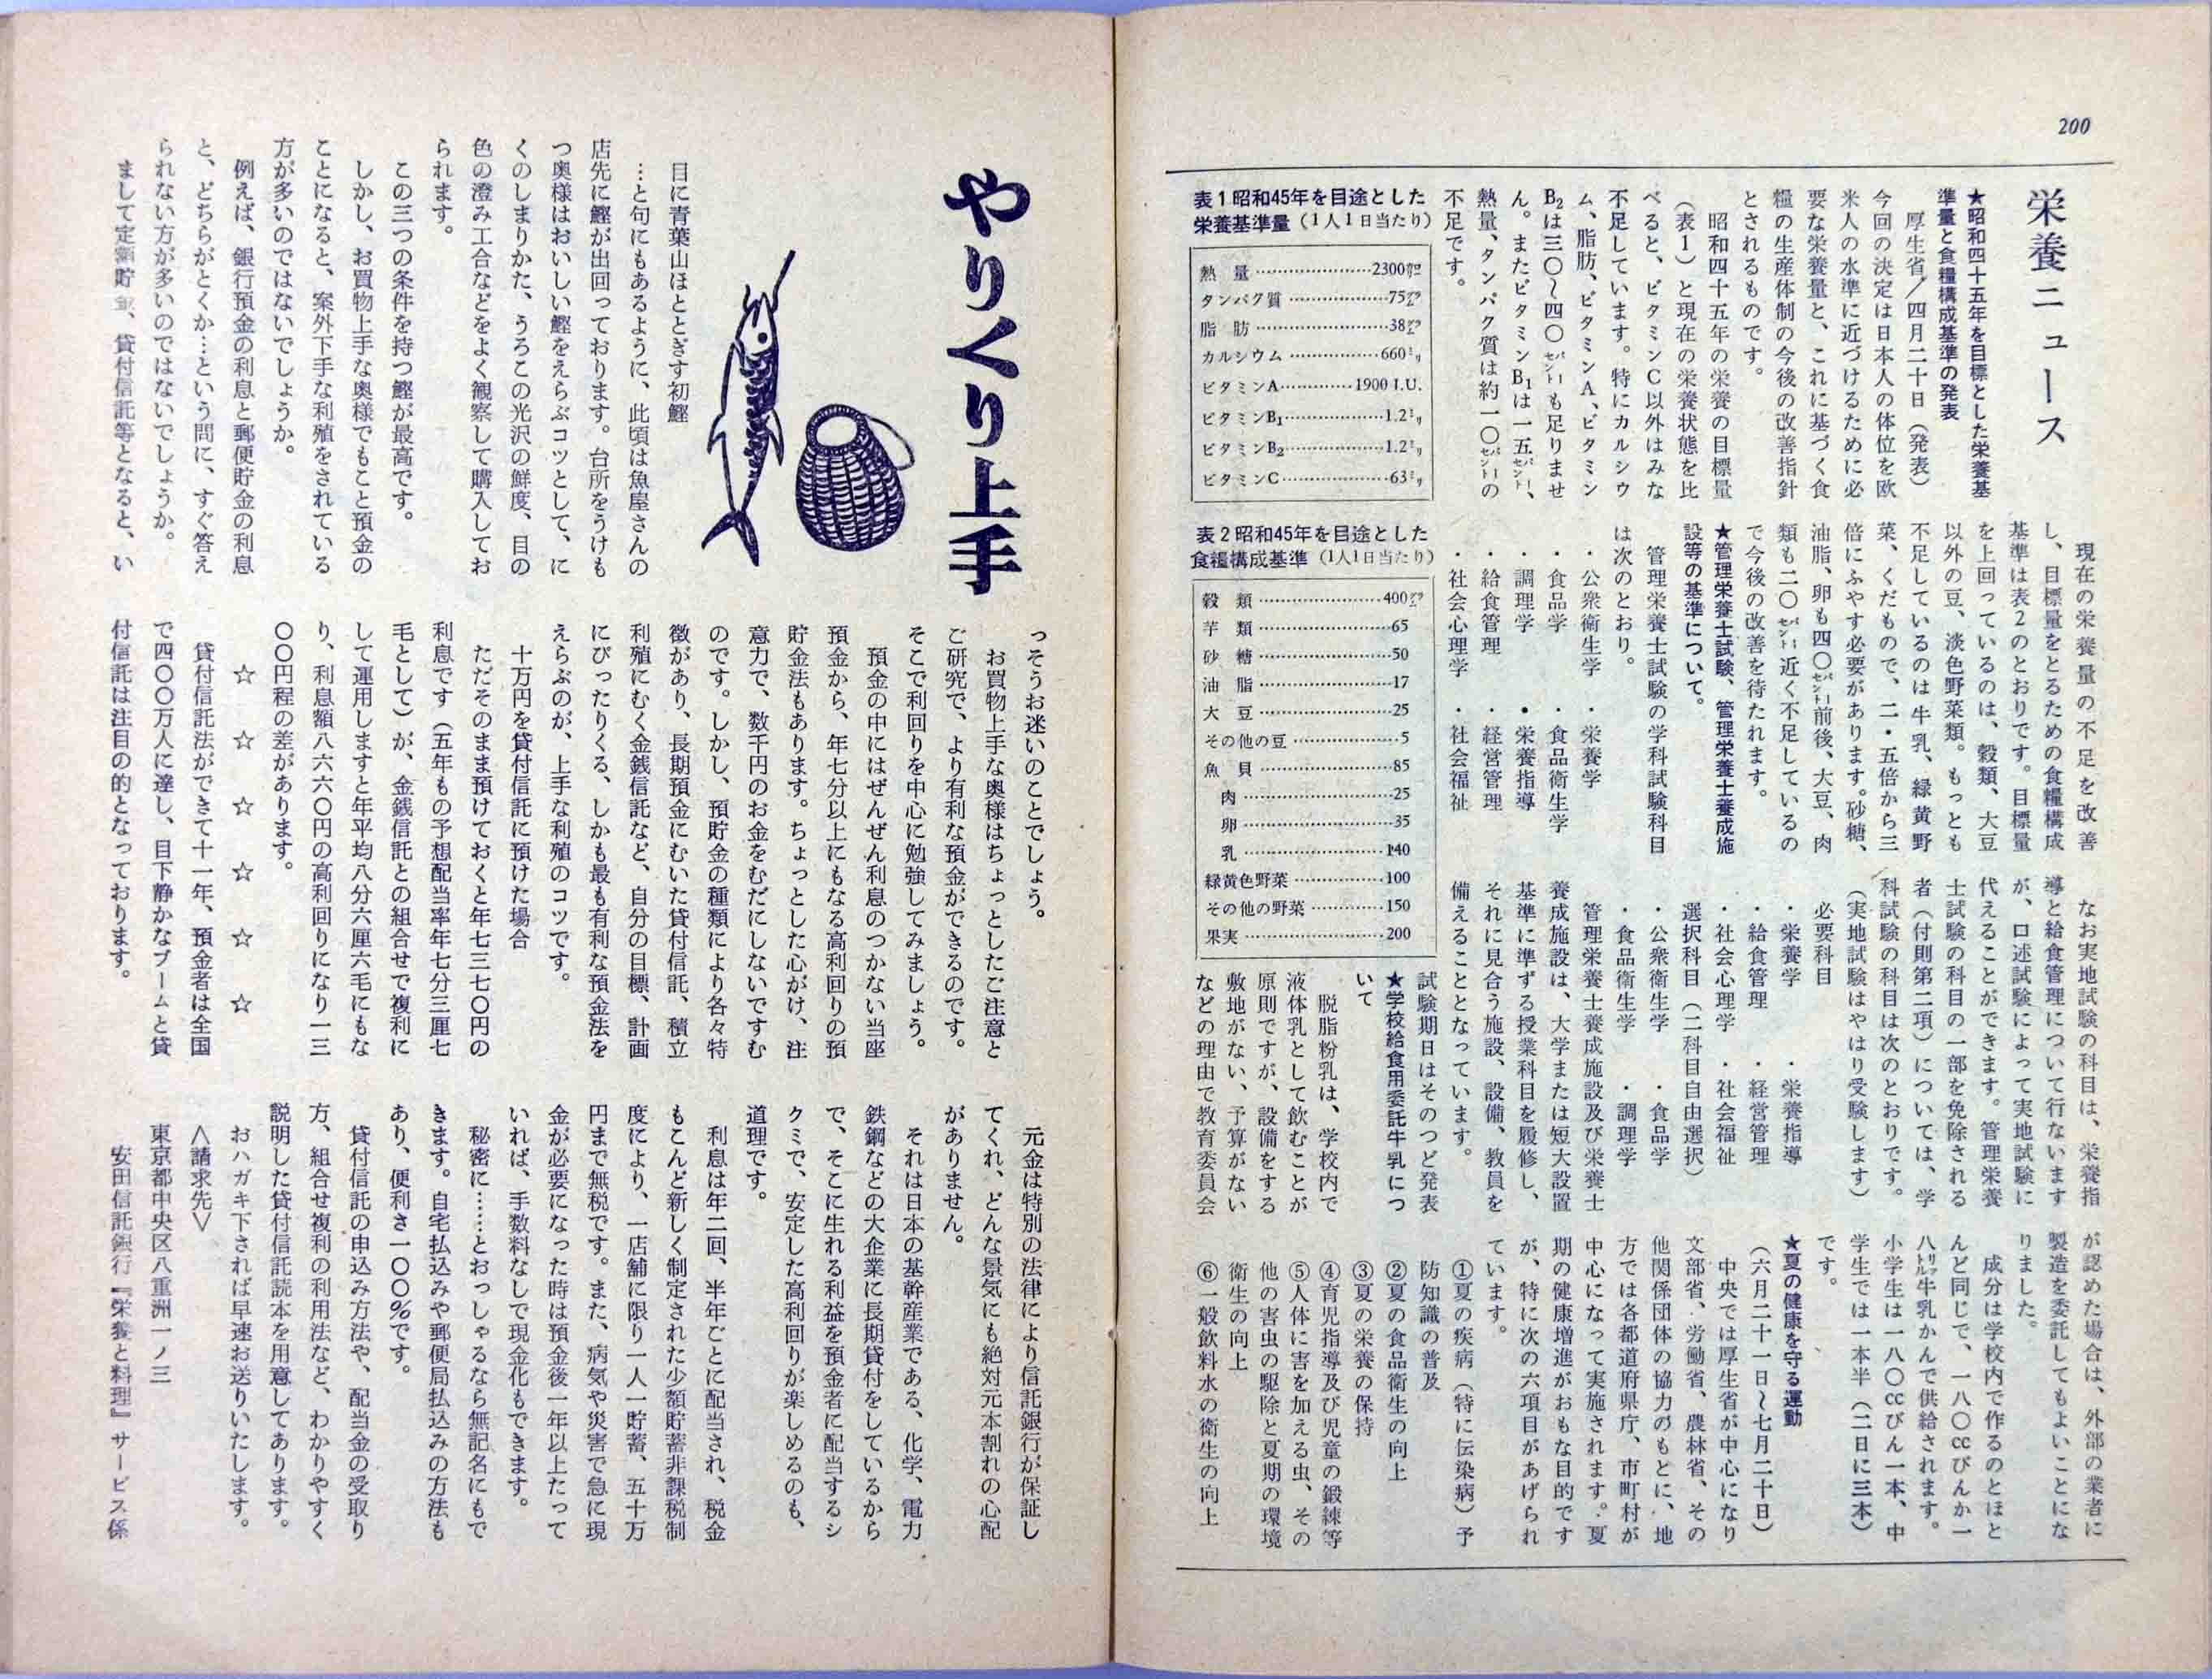 200
栄養ニュース
★昭和四十五年を目標とした栄養基
準量と食糧構成基準の発表
厚生省／四月二十日（発表）
今回の決定は日本人の体位を欧
米人の水準に近づけるために必
要な栄養量と、これに基づく食
糧の生産体制の今後の改善指針
とされるものです。
昭和四十五年の栄養の目標量
（表1）と現在の栄養状態を比
べると、ビタミンC以外はみな
不足しています。特にカルシウ
ム、脂肪、ビタミンA、ビタミン
B₂は三〇〜四〇パーセントも足りませ
ん。またビタミンB₁は一五パーセント、
熱量、タンパク質は約一〇パーセントの
不足です。
表1昭和45年を目途とした
栄養基準量（1人1日当たり）
熱　量…………2300カロリー
タンパク質…………75グラム
脂　肪…………38グラム
カルシウム…………660ミリグラム
ビタミンA…………1900 I.U.
ビタミンB₁…………1.2ミリグラム
ビタミンB₂…………1.2ミリグラム
ビタミンC…………63ミリグラム
現在の栄養量の不足を改善
し、目標量をとるための食糧構成
基準は表2のとおりです。目標量
を上回っているのは、穀類、大豆
以外の豆、淡色野菜類。もっとも
不足しているのは牛乳、緑黄野
菜、くだもので、二・五倍から三
倍にふやす必要があります。砂糖、
油脂、卵も四〇パーセント前後、大豆、肉
類も二〇パーセント近く不足しているの
で今後の改善を待たれます。
★管理栄養士試験、管理栄養士養成施
設等の基準について。
管理栄養士試験の学科試験科目
は次のとおり。
・公衆衛生学　・栄養学
・食品学　・食品衛生学
・調理学　・栄養指導
・給食管理　・経営管理
・社会心理学　・社会福祉
表2昭和45年を目途とした
食糧構成基準（1人1日当たり）
穀　類…………400グラム
芋　類…………65
砂　糖…………50
油　脂…………17
大　豆…………25
その他の豆…………5
魚　貝…………85
肉…………25
卵…………35
乳…………140
緑黄色野菜…………100
その他の野菜…………150
果実…………200
なお実地試験の科目は、栄養指
導と給食管理について行ないます
が、口述試験によって実地試験に
代えることができます。管理栄養
士試験の科目の一部を免除される
者（付則第二項）については、学
科試験の科目は次のとおりです。
（実地試験はやはり受験します）
必要科目
・栄養学　・栄養指導
・給食管理　・経営管理
・社会心理学　・社会福祉
選択科目（二科目自由選択）
・公衆衛生学　・食品学
・食品衛生学　・調理学
管理栄養士養成施設及び栄養士
養成施設は、大学または短大設置
基準に準ずる授業科目を履修し、
それに見合う施設、設備、教員を
備えることとなっています。
試験期日はそのつど発表
★学校給食用委託牛乳につ
いて
脱脂粉乳は、学校内で
液体乳として飲むことが
原則ですが、設備をする
敷地がない、予算がない
などの理由で教育委員会
が認めた場合は、外部の業者に
製造を委託してもよいことにな
りました。
成分は学校内で作るのとほと
んど同じで、一八〇ccびんか一
八リットル牛乳かんで供給されます。
小学生は一八〇ccびん一本、中
学生では一本半（二日に三本）
です。
★夏の健康を守る運動
（六月二十一日〜七月二十日）
中央では厚生省が中心になり
文部省、労働省、農林省、その
他関係団体の協力のもとに、地
方では各都道府県庁、市町村が
中心になって実施されます。夏
期の健康増進がおもな目的です
が、特に次の六項目があげられ
ています。
①夏の疾病（特に伝染病）予
防知識の普及
②夏の食品衛生の向上
③夏の栄養の保持
④育児指導及び児童の鍛練等
⑤人体に害を加える虫、その
他の害虫の駆除と夏期の環境
衛生の向上
⑥一般飲料水の衛生の向上
やりくり上手
目に青葉山ほととぎす初鰹
…と句にもあるように、此頃は魚屋さんの
店先に鰹が出回っております。台所をうけも
つ奥様はおいしい鰹をえらぶコツとして、に
くのしまりかた、うろこの光沢の鮮度、目の
色の澄み工合などをよく観察して購入してお
られます。
この三つの条件を持つ鰹が最高です。
しかし、お買物上手な奥様でもこと預金の
ことになると、案外下手な利殖をされている
方が多いのではないでしょうか。
例えば、銀行預金の利息と郵便貯金の利息
と、どちらがとくか…という問に、すぐ答え
られない方が多いのではないでしょうか。
まして定額貯金、貸付信託等となると、い
っそうお迷いのことでしょう。
お買物上手な奥様はちょっとしたご注意と
ご研究で、より有利な預金ができるのです。
そこで利回りを中心に勉強してみましょう。
預金の中にはぜんぜん利息のつかない当座
預金から、年七分以上にもなる高利回りの預
貯金法もあります。ちょっとした心がけ、注
意力で、数千円のお金をむだにしないですむ
のです。しかし、預貯金の種類により各々特
徴があり、長期預金にむいた貸付信託、積立
利殖にむく金銭信託など、自分の目標、計画
にぴったりくる、しかも最も有利な預金法を
えらぶのが、上手な利殖のコツです。
十万円を貸付信託に預けた場合
ただそのまま預けておくと年七三七〇円の
利息です（五年もの予想配当率年七分三厘七
毛として）が、金銭信託との組合せで複利に
して運用しますと年平均八分六厘六毛にもな
り、利息額八六六〇円の高利回りになり一三
〇〇円程の差があります。
☆　☆　☆　☆　☆　☆
貸付信託法ができて十一年、預金者は全国
で四〇〇万人に達し、目下静かなブームと貸
付信託は注目の的となっております。
元金は特別の法律により信託銀行が保証し
てくれ、どんな景気にも絶対元本割れの心配
がありません。
それは日本の基幹産業である、化学、電力
鉄鋼などの大企業に長期貸付をしているから
で、そこに生れる利益を預金者に配当するシ
クミで、安定した高利回りが楽しめるのも、
道理です。
利息は年二回、半年ごとに配当され、税金
もこんど新しく制定された少額貯蓄非課税制
度により、一店舗に限り一人一貯蓄、五十万
円まで無税です。また、病気や災害で急に現
金が必要になった時は預金後一年以上たって
いれば、手数料なしで現金化もできます。
秘密に……とおっしゃるなら無記名にもで
きます。自宅払込みや郵便局払込みの方法も
あり、便利さ一〇〇％です。
貸付信託の申込み方法や、配当金の受取り
方、組合せ複利の利用法など、わかりやすく
説明した貸付信託読本を用意してあります。
おハガキ下されば早速お送りいたします。
＜請求先＞
東京都中央区八重洲一ノ三
安田信託銀行『栄養と料理』サービス係